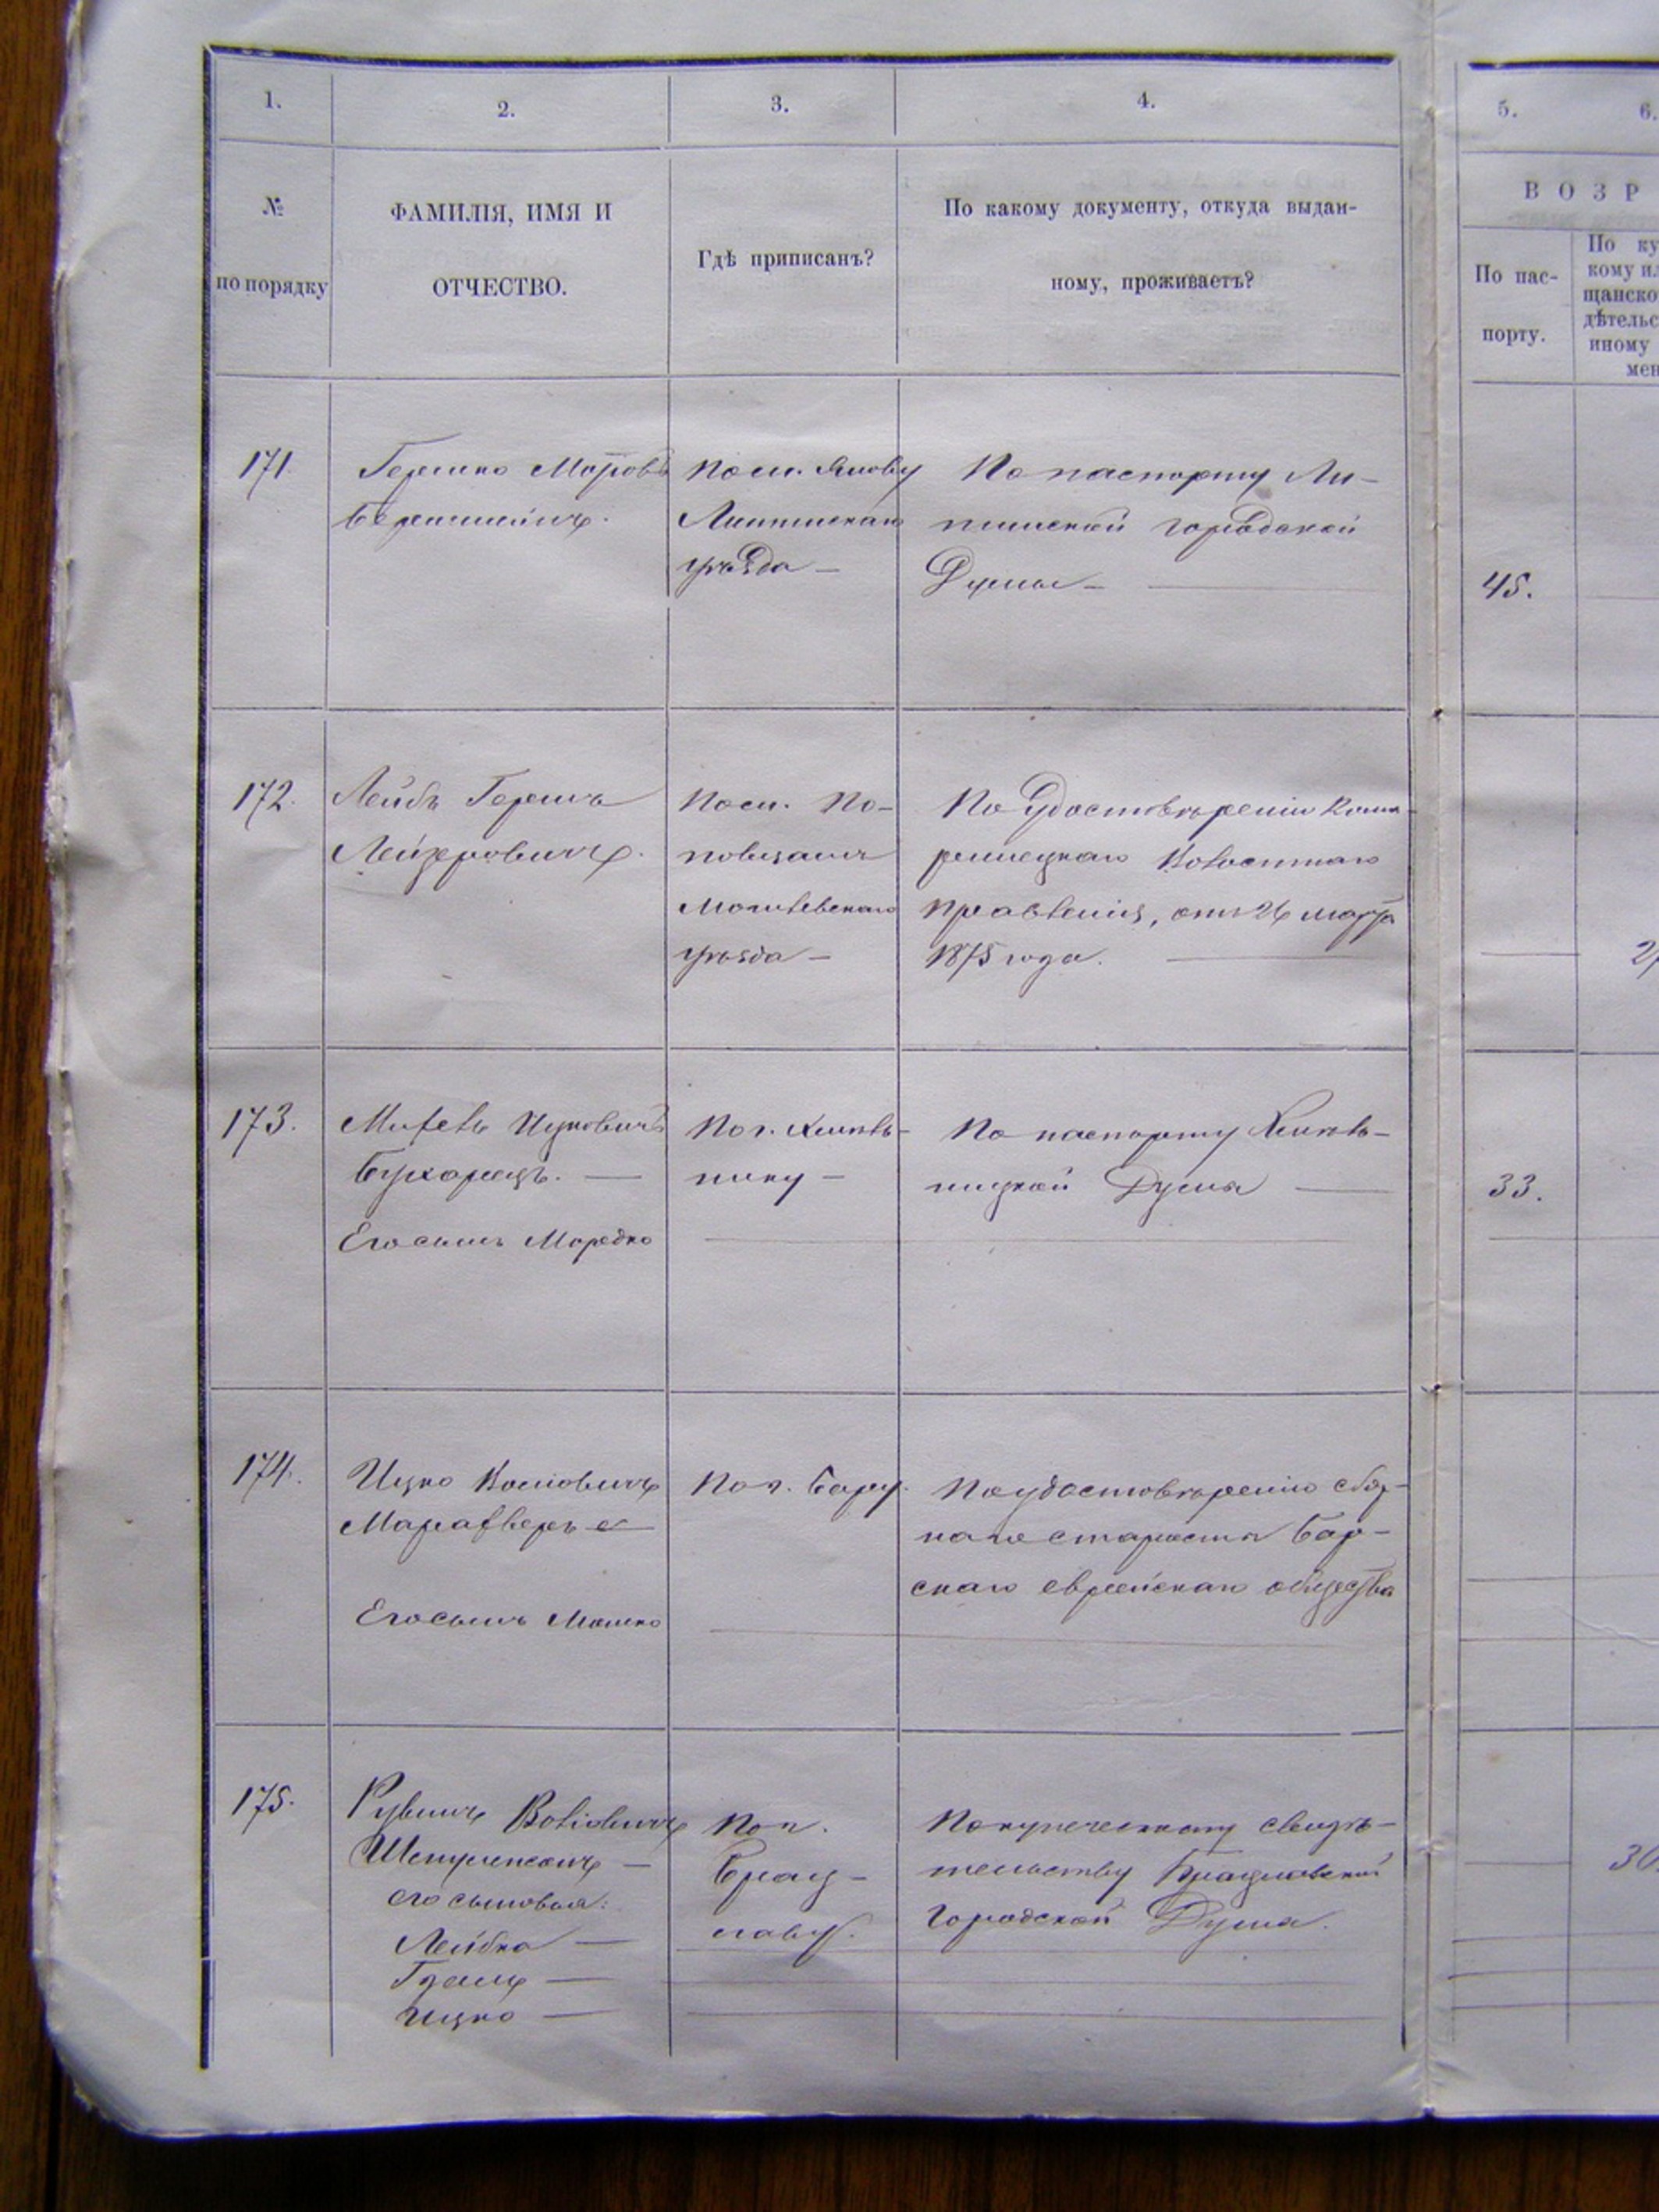 1.
2.
3.
4.
5.
6.
№
по порядку
ФАМИЛІЯ, ИМЯ И
ОТЧЕСТВО.
Гдѣ приписанъ?
По какому документу, откуда выдан-
ному, проживаетъ?
ВОЗР
По пас-
порту.
По ку
кому ил
щанско
дѣтельс
иному
мен
171.
Гершко
Беренштейнъ.
По м. Янову
Литинскаго
уѣзда —
По паспорту Ли-
тинской городской
Думы —
45.
172.
Лейбъ Герш
Лейзеровичъ.
По м. По-
повцамъ
Могилевскаго
уѣзда —
По удостовѣренію
Волостнаго
Правленія, отъ 24 марта
1875 года.
173.
Ицковичъ
Бухарецъ. —
Его сынъ Мордко
По г. Хмѣль-
нику —
По паспорту Хмѣль-
ницкой Думы —
33.
174.
Ицко
Его сынъ Мошко
По г. Бару.
По удостовѣренію сбор-
наго старосты Бар-
скаго еврейскаго общества
175.
Рувинъ Волковичъ
его сыновья:
Лейбка —
Ицко —
По г.
Брац-
лаву.
По купеческому свидѣ-
тельству Брацлавской
Городской Думы.
30